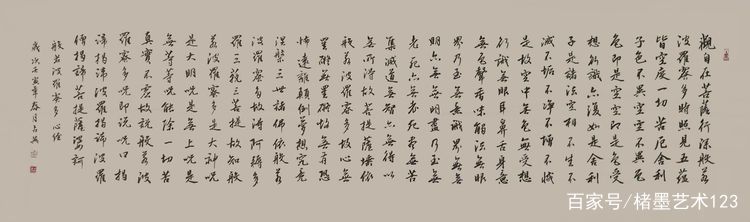 觀自在菩薩行深般若
波羅蜜多時照見五蘊
皆空度一切苦厄舍利
子色不異空空不異色
色即是空空即是色受
想行識亦復如是舍利
子是諸法空相不生不
滅不垢不淨不增不減
是故空中無色無受想
行識無眼耳鼻舌身意
無色聲香味觸法無眼
界乃至無意識界無無
明亦無無明盡乃至無
老死亦無老死盡無苦
集滅道無智亦無得以
無所得故菩提薩埵依
般若波羅蜜多故心無
罣礙無罣礙故無有恐
怖遠離顛倒夢想究竟
涅槃三世諸佛依般若
波羅蜜多故得阿耨多
羅三藐三菩提故知般
若波羅蜜多是大神呪
是大明呪是無上呪是
無等等呪能除一切苦
真實不虛故說般若波
羅蜜多呪即說呪曰揭
諦揭諦波羅揭諦波羅
僧揭諦菩提薩婆訶
般若波羅蜜多心經
歲次壬寅年春月
百家号/楮墨艺术123